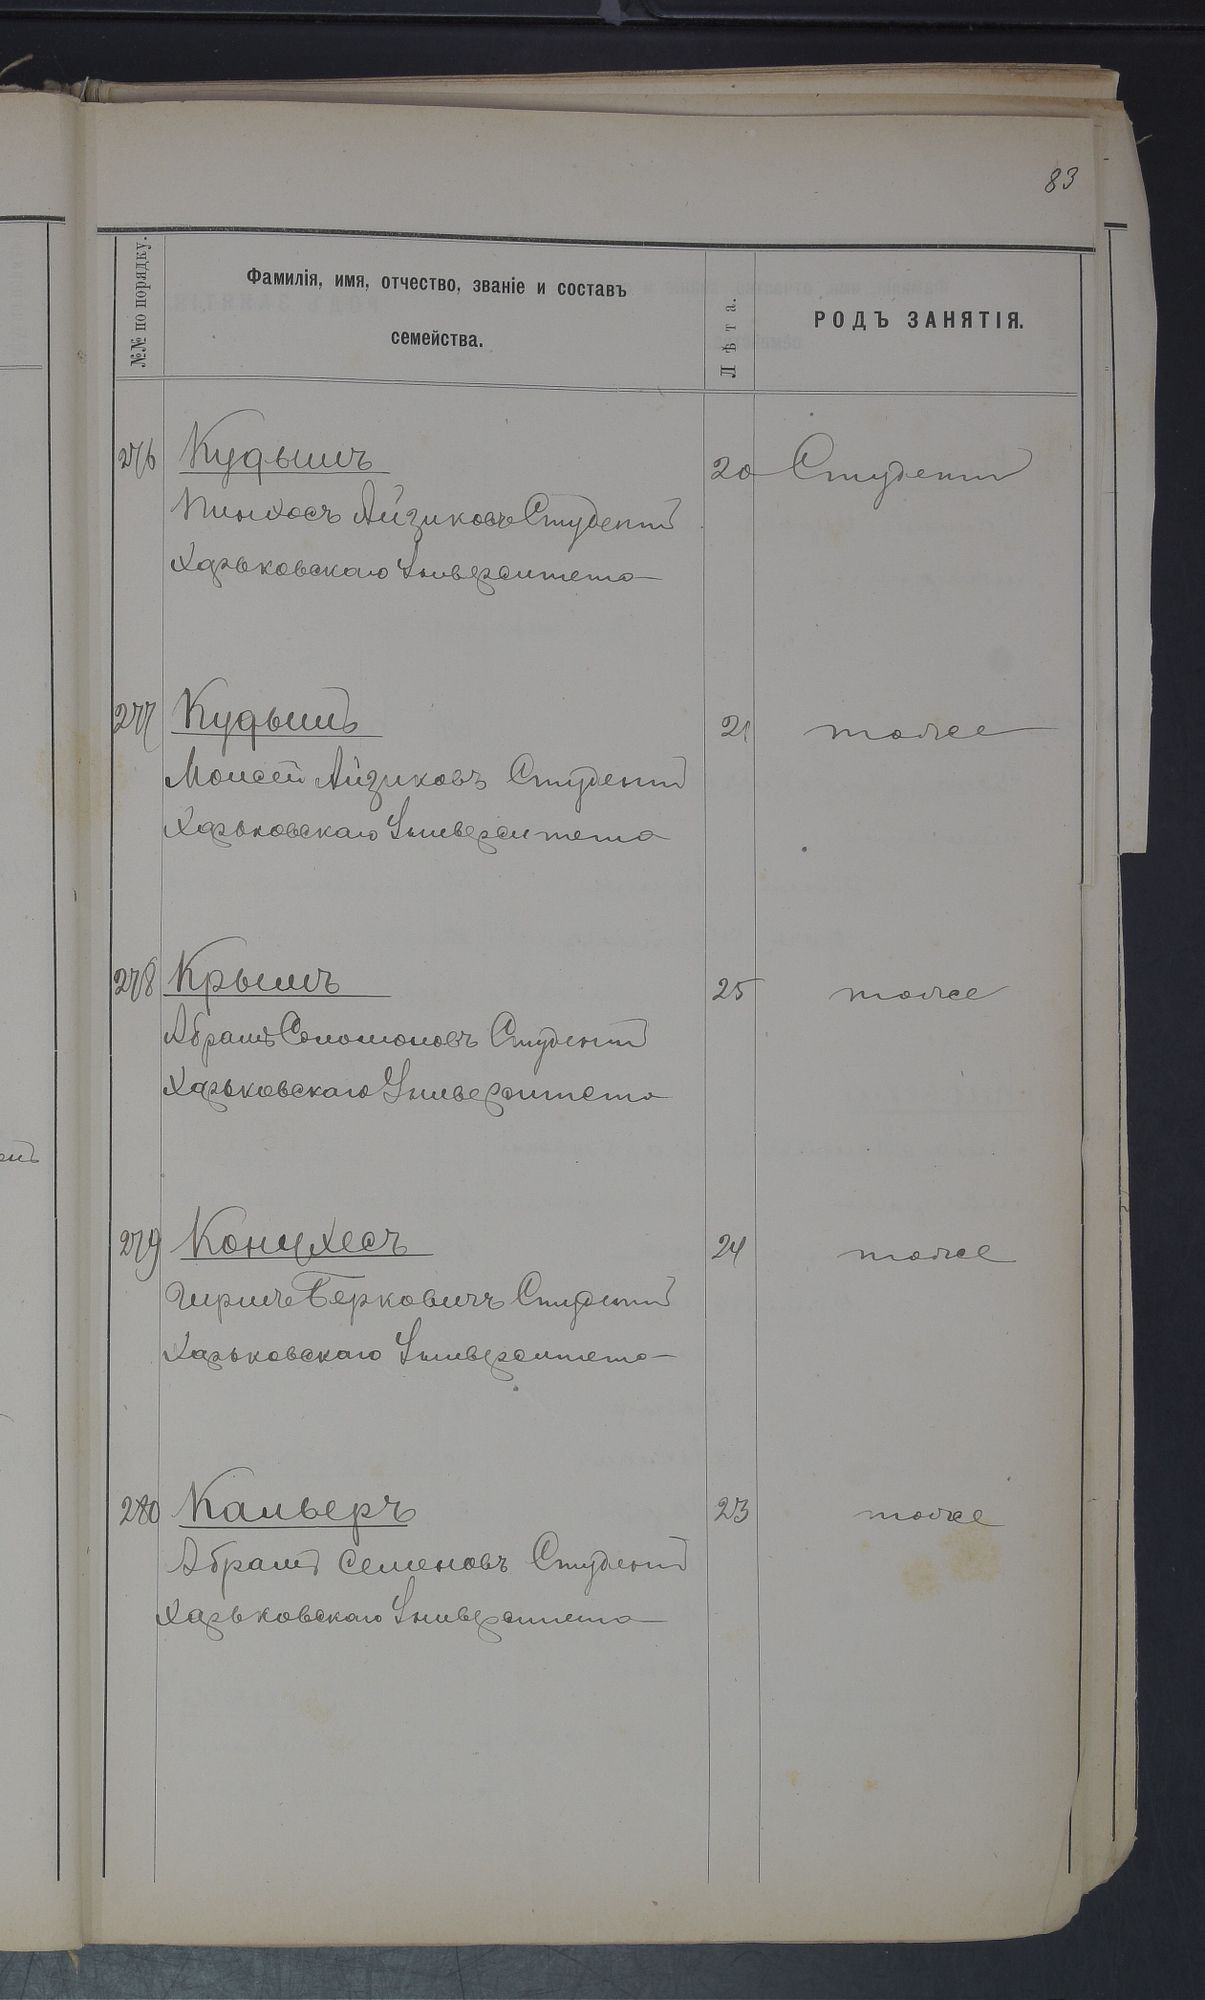 83
№№ по порядку.
Фамилія, имя, отчество, званіе и составъ
семейства.
Лѣта.
РОДЪ ЗАНЯТІЯ.
276 Кудышъ 20 Студентъ
Пинхосъ Айзиковъ Студентъ
Харьковскаго Университета
277 Кудышъ 21 тоже
Моисей Айзиковъ Студентъ
Харьковскаго Университета
278 Крымъ 25 тоже
Абрамъ Соломоновъ Студентъ
Харьковскаго Университета
279 Конухесъ 24 тоже
Гиршъ Берковичъ Студентъ
Харьковскаго Университета
280 Кальверъ 23 тоже
Абрамъ Семеновъ Студентъ
Харьковскаго Университета